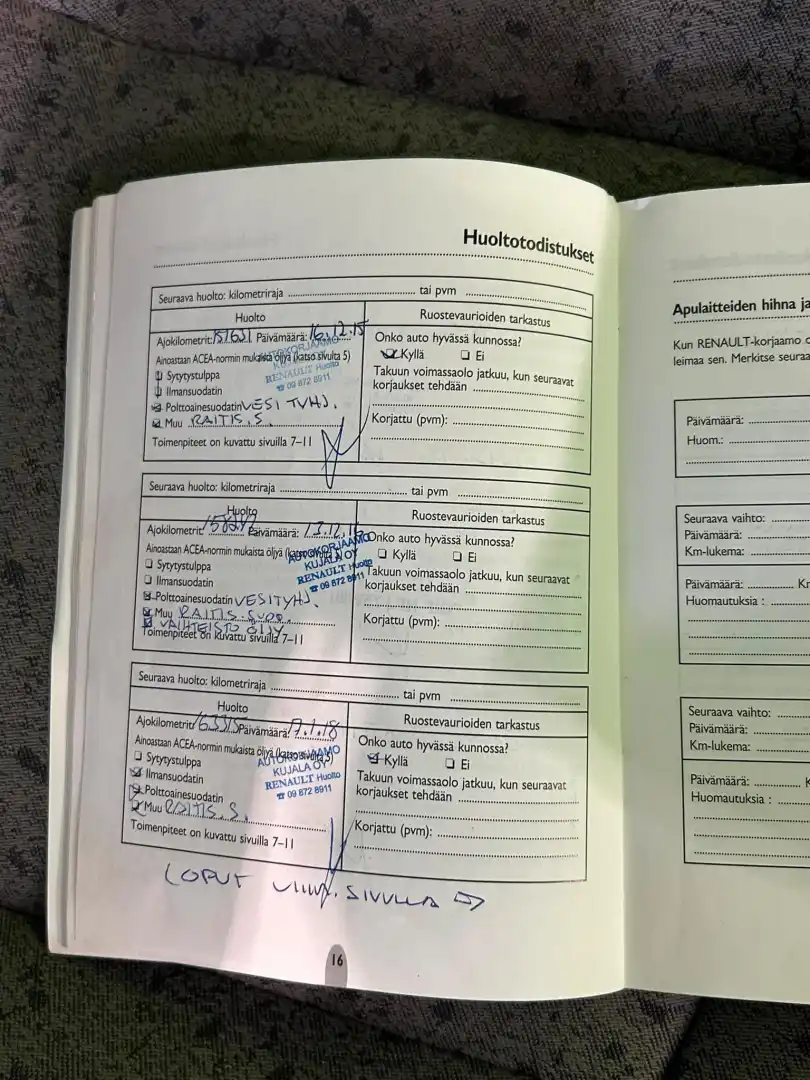 Huoltotodistukset
Seuraava huolto: kilometriraja tai pvm
Huolto
Ruostevaurioiden tarkastus
Ajokilometrit: 151631 Päivämäärä: 16.12.15
Ainoastaan ACEA-normin mukaista öljyä (katso sivulta 5)
Sytytystulppa
Ilmansuodatin
Polttoainesuodatin VESI TYHJ.
Muu RAITIS.S.
Toimenpiteet on kuvattu sivuilla 7–11
AUTOKORJAAMO
RENAULT Huolto
☎ 09 872 8911
Onko auto hyvässä kunnossa?
Kyllä Ei
Takuun voimassaolo jatkuu, kun seuraavat
korjaukset tehdään
Korjattu (pvm):
Seuraava huolto: kilometriraja tai pvm
Huolto
Ruostevaurioiden tarkastus
Ajokilometrit: Päivämäärä: 13.12.16
Ainoastaan ACEA-normin mukaista öljyä
Sytytystulppa
Ilmansuodatin
Polttoainesuodatin VESITYHJ.
Muu RAITIS.SUOD.
VAIHTEISTO ÖLJY
Toimenpiteet on kuvattu sivuilla 7–11
AUTOKORJAAMO
KUJALA OY
RENAULT Huolto
☎ 09 872 8911
Onko auto hyvässä kunnossa?
Kyllä Ei
Takuun voimassaolo jatkuu, kun seuraavat
korjaukset tehdään
Korjattu (pvm):
Seuraava huolto: kilometriraja tai pvm
Huolto
Ruostevaurioiden tarkastus
Ajokilometrit: 163315 Päivämäärä: 17.1.18
Ainoastaan ACEA-normin mukaista öljyä (katso sivulta 5)
Sytytystulppa
Ilmansuodatin
Polttoainesuodatin
Muu RAITIS.S.
Toimenpiteet on kuvattu sivuilla 7–11
AUTOKORJAAMO
KUJALA OY
RENAULT Huolto
☎ 09 872 8911
Onko auto hyvässä kunnossa?
Kyllä Ei
Takuun voimassaolo jatkuu, kun seuraavat
korjaukset tehdään
Korjattu (pvm):
LOPUT SIVULLA
16
Apulaitteiden hihna ja
Kun RENAULT-korjaamo
leimaa sen. Merkitse
Päivämäärä:
Huom.:
Seuraava vaihto:
Päivämäärä:
Km-lukema:
Päivämäärä:
Huomautuksia :
Seuraava vaihto:
Päivämäärä:
Km-lukema:
Päivämäärä:
Huomautuksia :